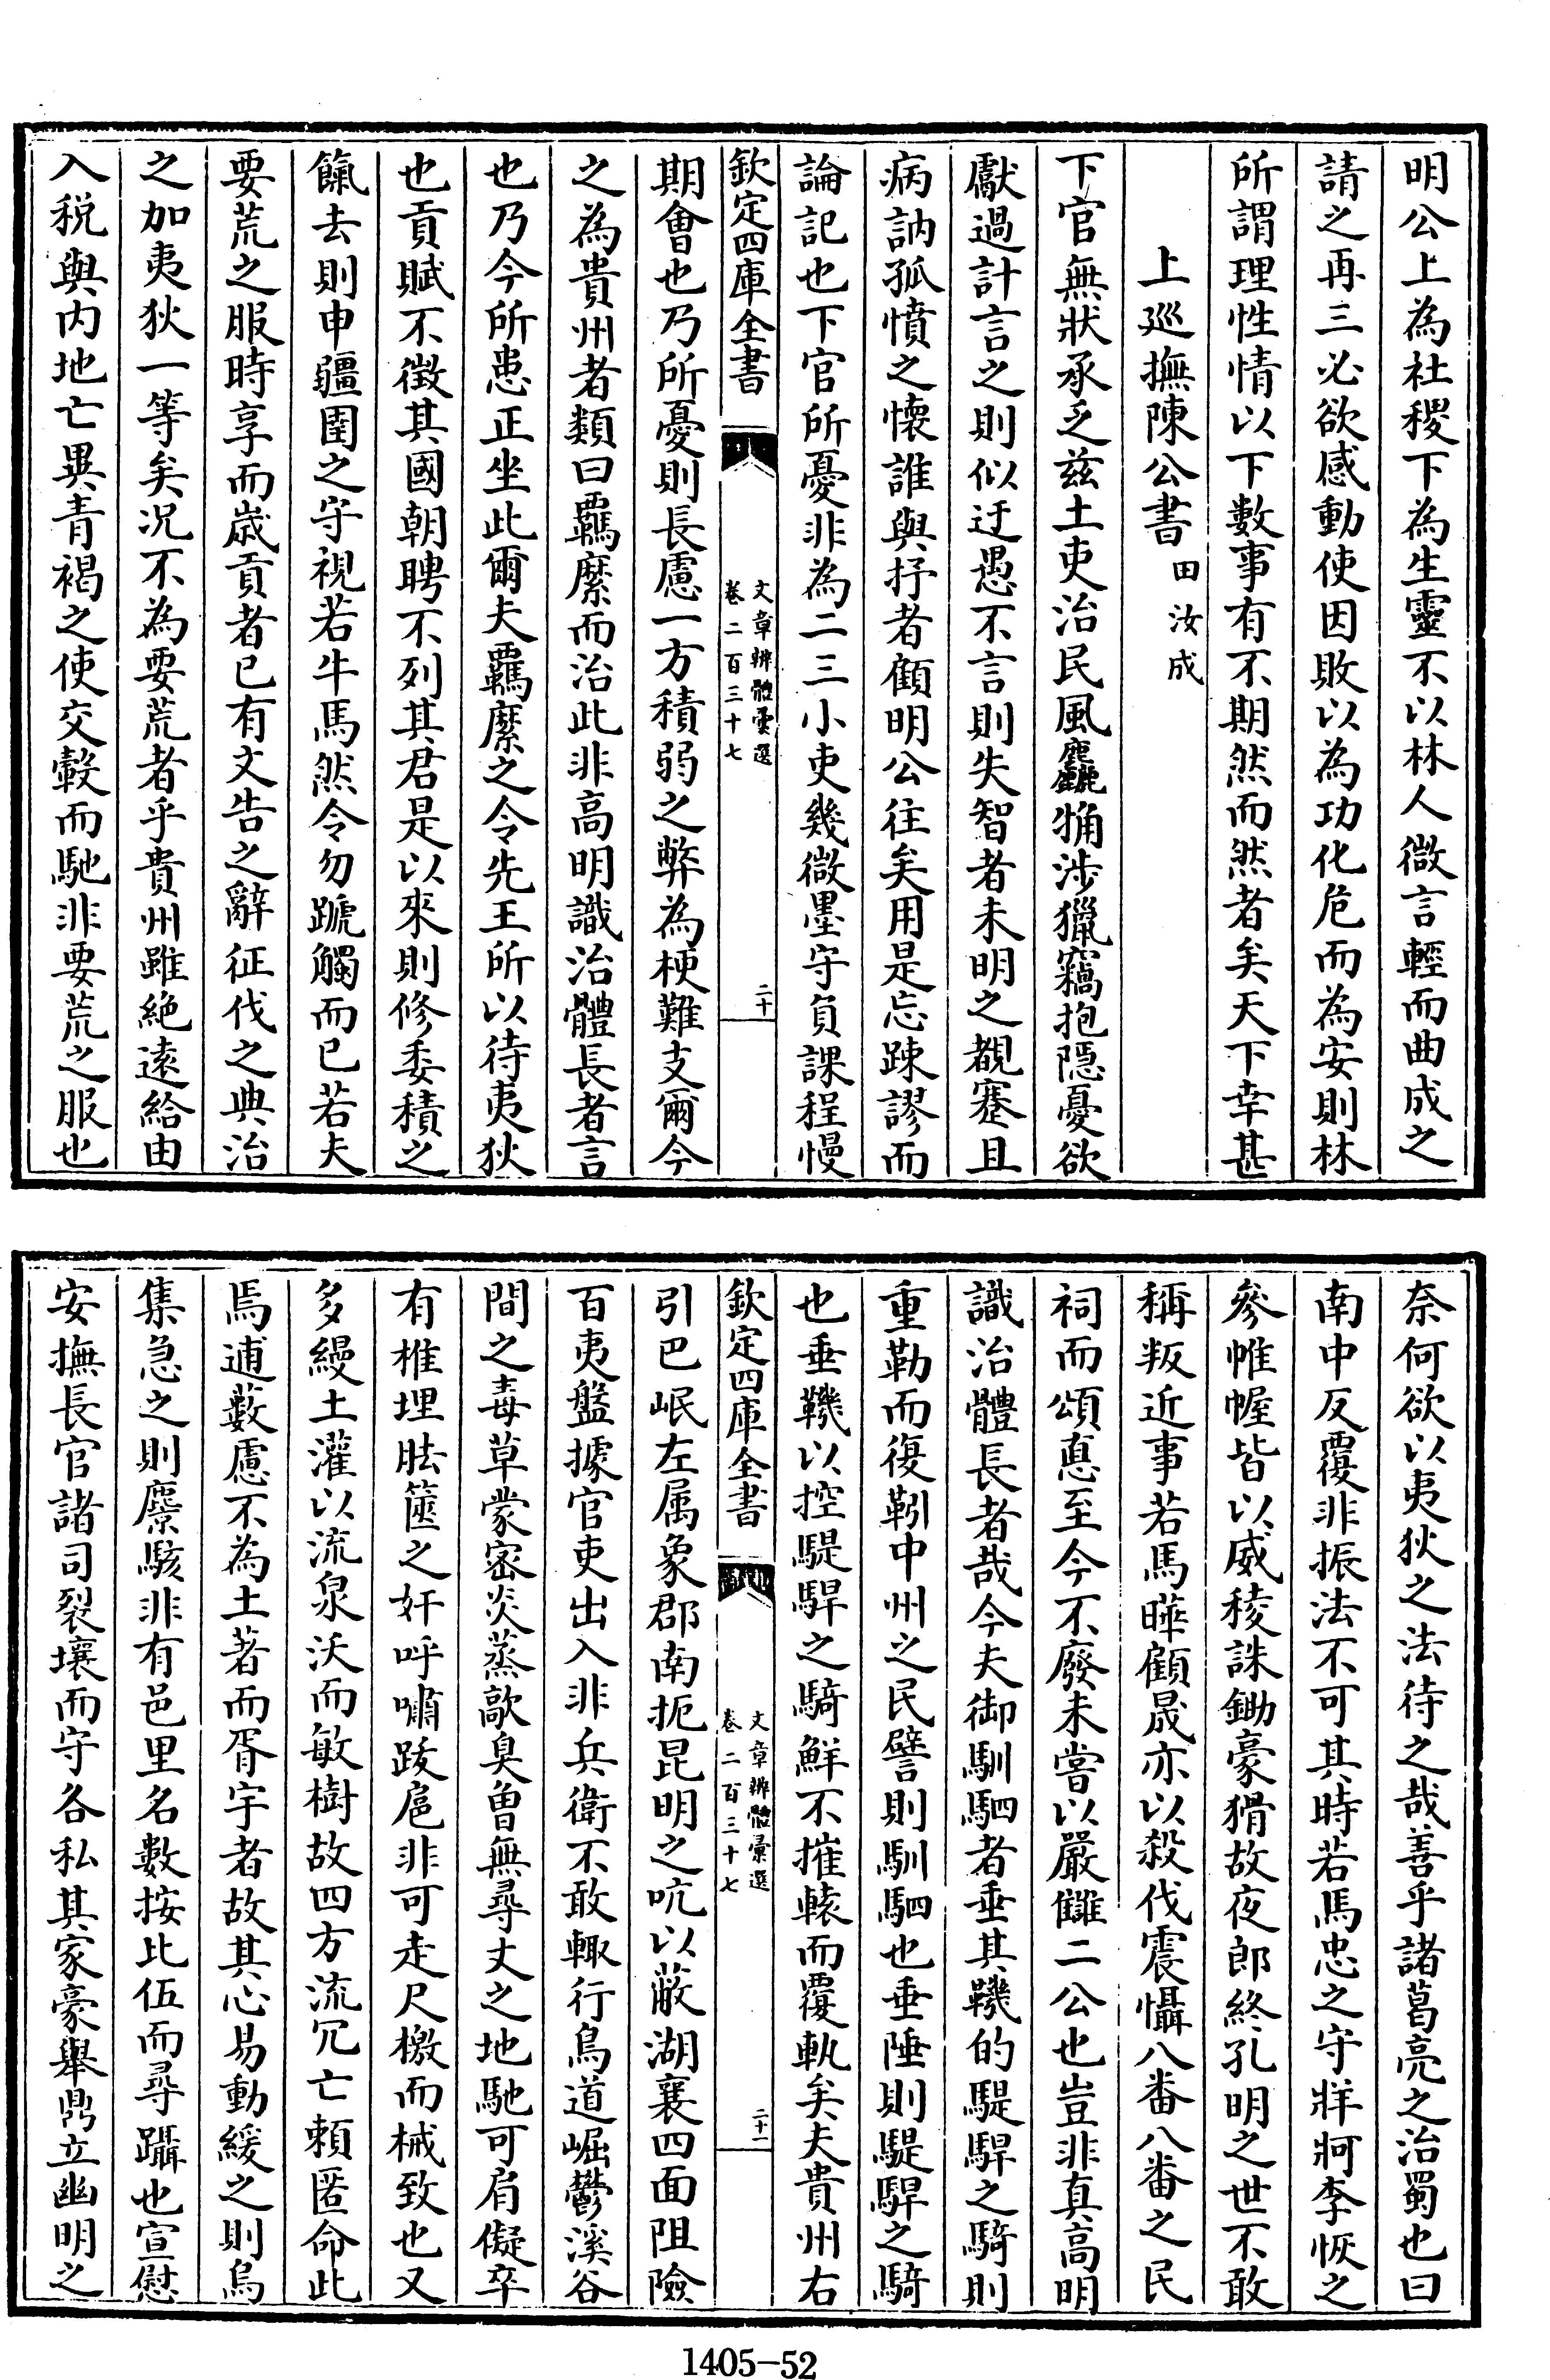 明公上為社稷下為生靈不以林人微言輕而曲成之
請之再三必欲感動使因敗以為功化危而為安則林
所謂理性情以下數事有不期然而然者矣天下幸甚
上巡撫陳公書田汝成
下官無狀承乏兹土吏治民風麤觕涉獵竊抱隱憂欲
獻過計言之則似迂愚不言則失智者未明之覩蹇且
病訥孤憤之懷誰與抒者顧明公往矣用是忘踈謬而
論記也下官所憂非為二三小吏幾微墨守負課程慢
欽定四庫全書
文章辨體彚選
卷二百三十七
二十
期會也乃所憂則長慮一方積弱之弊為梗難支爾今
之為貴州者類曰羈縻而治此非高明識治體長者言
也乃今所患正坐此爾夫羈縻之令先王所以待夷狄
也貢賦不徵其國朝聘不列其君是以來則修委積之
餼去則申疆圉之守視若牛馬然令勿蹏觸而已若夫
要荒之服時享而歲貢者已有文告之辭征伐之典治
之加夷狄一等矣况不為要荒者乎貴州雖絶逺給由
入税與内地亡異青褐之使交轂而馳非要荒之服也
奈何欲以夷狄之法待之哉善乎諸葛亮之治蜀也曰
南中反覆非振法不可其時若馬忠之守牂牁李恢之
參帷幄皆以威稜誅鋤豪猾故夜郎終孔明之世不敢
稱叛近事若馬曄顧晟亦以殺伐震懾八番八番之民
祠而頌悳至今不廢未嘗以嚴讎二公也豈非真高明
識治體長者哉今夫御馴駟者垂其鞿的騠駻之騎則
重勒而復靷中州之民譬則馴駟也垂陲則騠駻之騎
也垂鞿以控騠駻之騎鮮不摧轅而覆軌矣夫貴州右
欽定四庫全書
文章辨體彚選
卷二百三十七
二十一
引巴岷左属象郡南扼昆明之吭以蔽湖襄四面阻險
百夷盤據官吏出入非兵衞不敢輙行鳥道崛鬱溪谷
間之毒草蒙密炎蒸歊臭曽無尋丈之地馳可肩儗卒
有椎埋胠篋之奸呼嘯跋扈非可走尺檄而械致也又
多縵土灌以流泉沃而敏樹故四方流冗亡頼匿命此
焉逋藪慮不為土著而胥宇者故其心易動緩之則烏
集急之則麇駭非有邑里名數按比伍而尋躡也宣慰
安撫長官諸司裂壤而守各私其家豪舉鼎立幽明之
1405-52